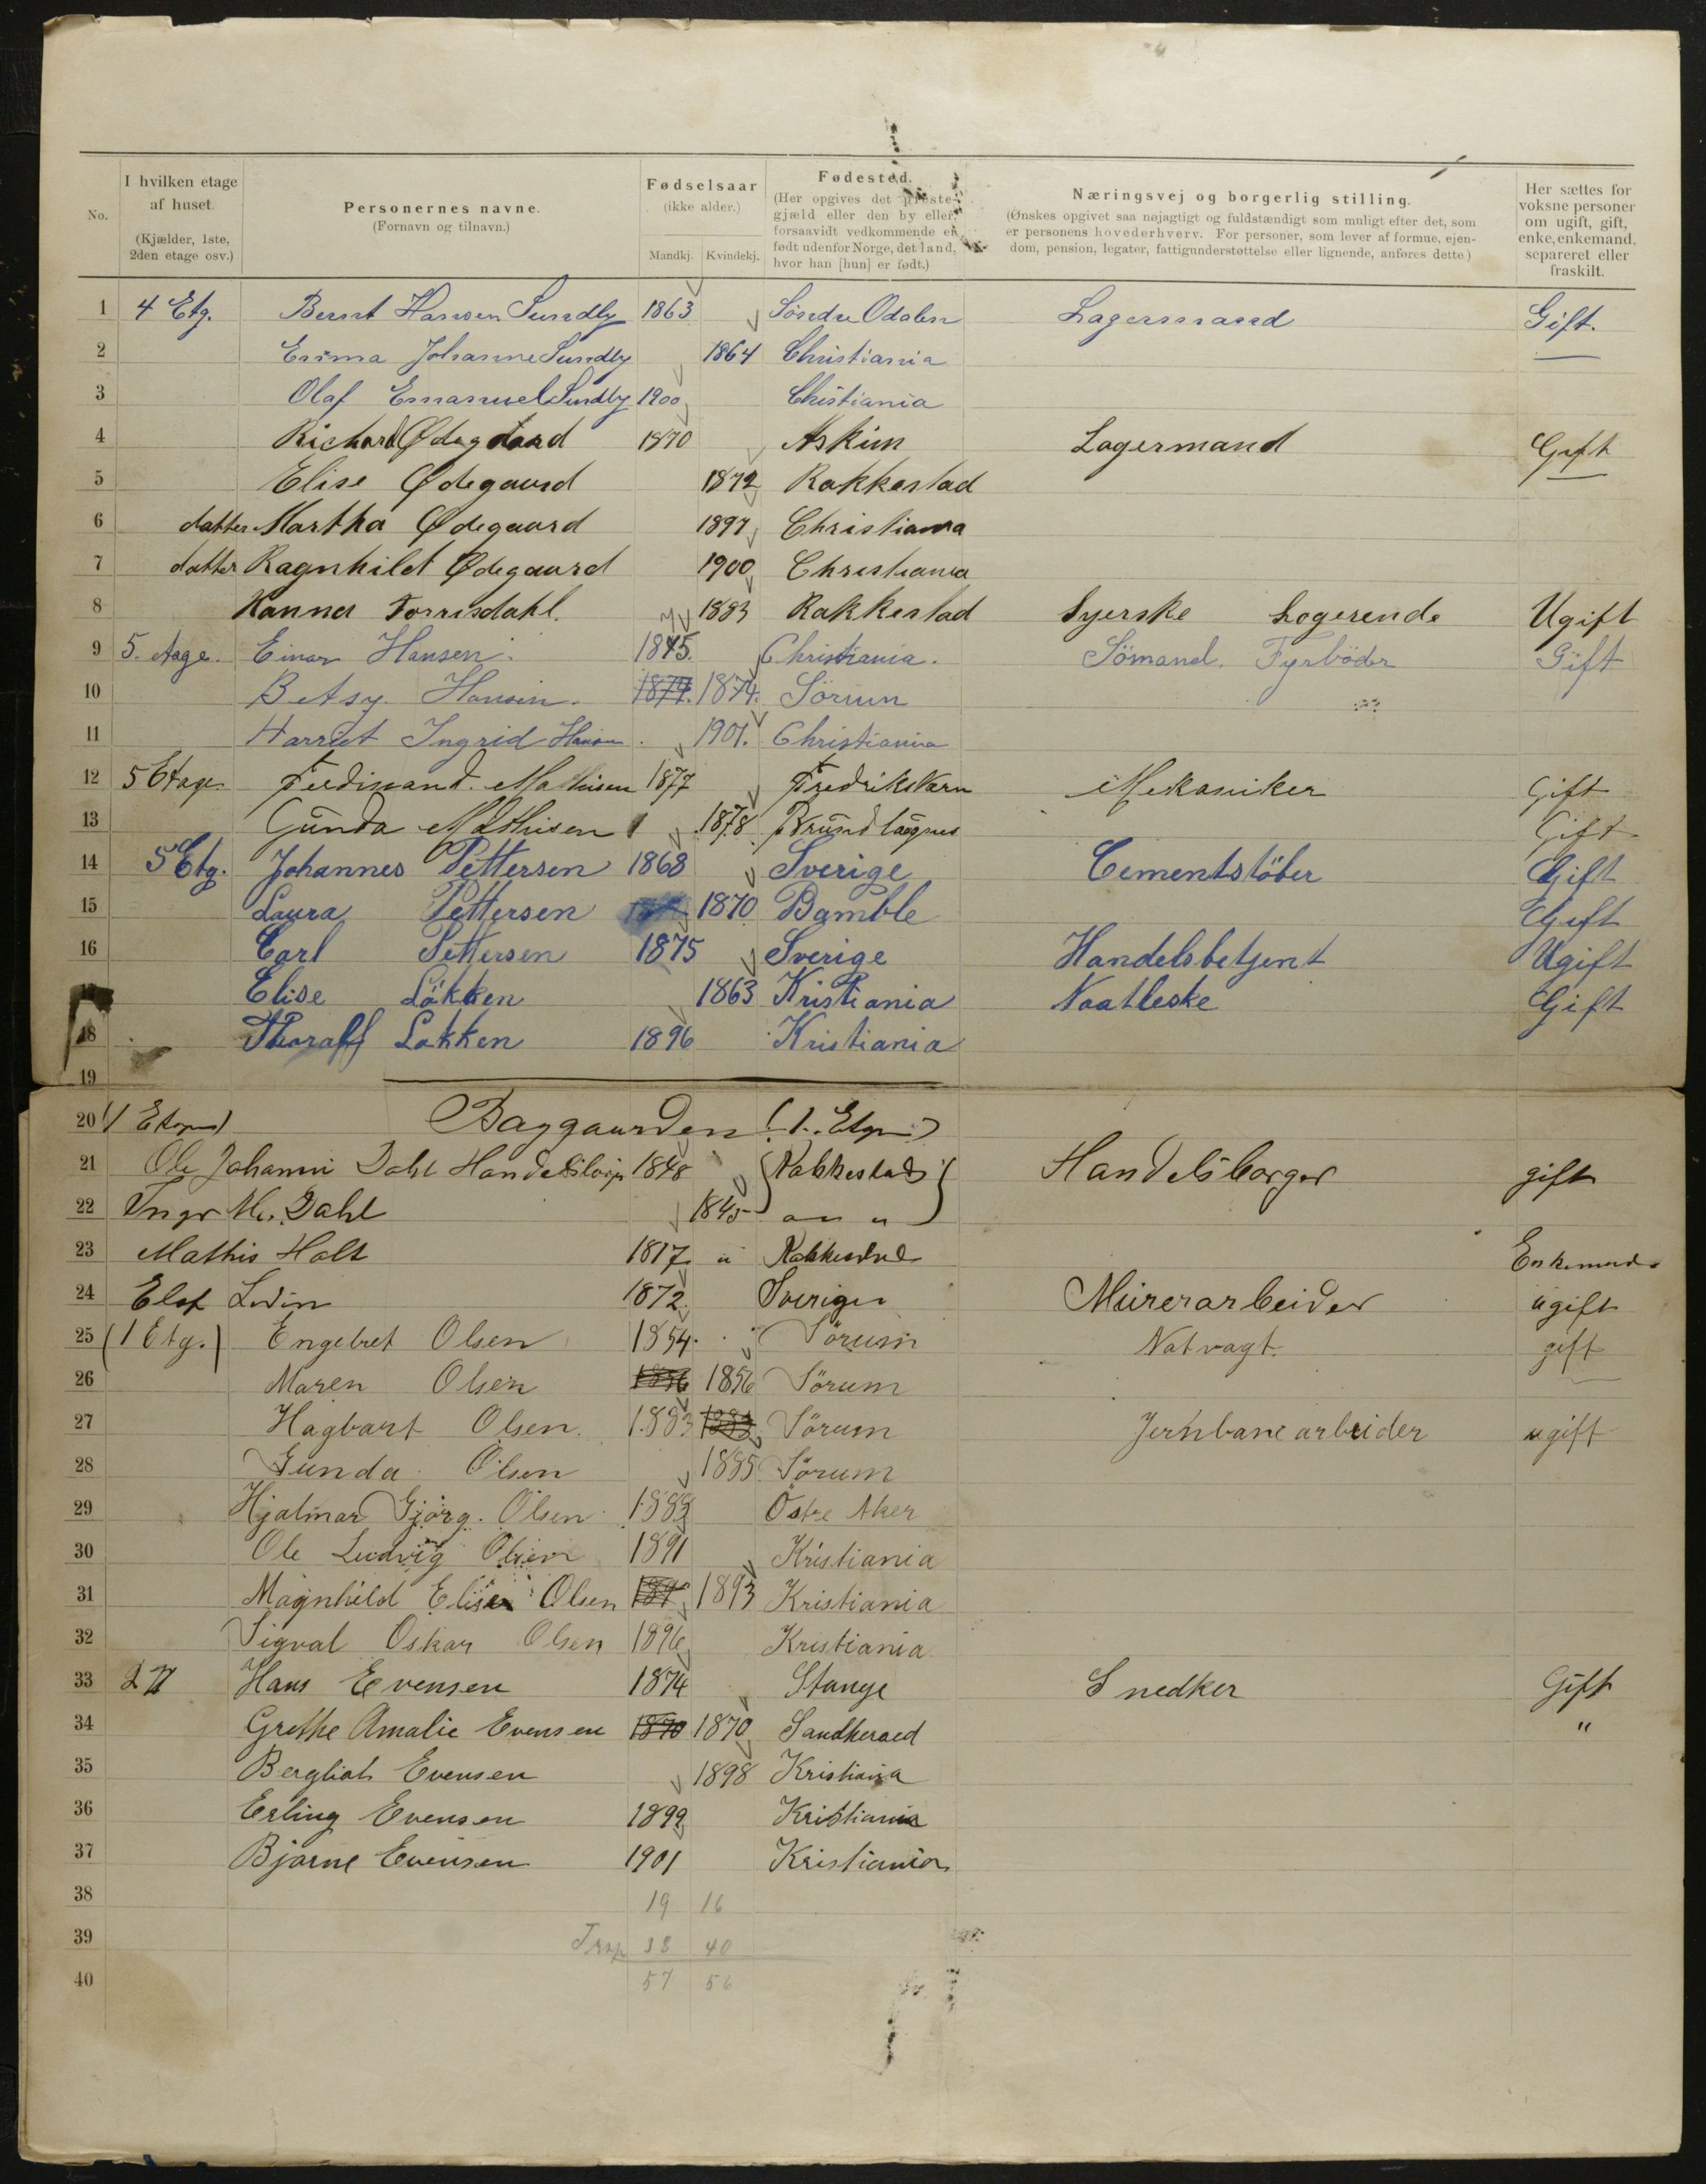 No.
I hvilken etage af huset.
(Kjælder, 1ste, 2den etage osv.)
Personernes navne.
(Fornavn og tilnavn.)
Fødselsaar
(ikke alder.)
Mandkj. Kvindekj.
Fødested.
(Her opgives det præste-
gjæld eller den by eller,
forsaavidt vedkommende er
født udenfor Norge, det land,
hvor han [hun] er født.)
Næringsvej og borgerlig stilling.
(Ønskes opgivet saa nøjagtigt og fuldstændigt som muligt efter det, som
er personens hovederhverv. For personer, som lever af formue, ejen-
dom, pension, legater, fattigunderstøttelse eller lignende, anføres dette.)
Her sættes for
voksne personer
om ugift, gift,
enke, enkemand,
separeret eller
fraskilt.
1 4 Etg. Bernt Hansen Sundby 1863 Søndre Odalen Lagermand Gift.
2 Emma Johanne Sundby 1864 Christiania
3 Olaf Emanuel Sundby 1900 Christiania
4 Richard Ødegaard 1870 Askim Lagermand Gift
5 Elise Ødegaard 1872 Rakkestad
6 datter Martha Ødegaard 1897 Christiania
7 datter Ragnhild Ødegaard 1900 Christiania
8 Hanna Torrisdahl. 1883 Rakkestad Syerske Logerende Ugift
9 5. etage. Einar Hansen. 1875. Christiania. Sömand. Fyrböder Gift
10 Betsy Hansen. 1874. Sörum
11 Harriet Ingrid Hansen 1901. Christiania
12 5 Etage Ferdinand Mathisen 1877 Fredriksværn Mekaniker Gift
13 Gunda Mathisen 1878 Brundlagnes Gift
14 5 Etg. Johannes Pettersen 1868 Sverige Cementstöber Gift
15 Laura Pettersen 1870 Bamble Gift
16 Carl Pettersen 1875 Sverige Handelsbetjent Ugift
Elise Løkken 1863 Kristiania Gift
18 Thoralf Løkken 1896 Kristiania
19
20 (1 Etage) Baggaarden (1. Etge)
21 Ole Johanni Dahl 1848 Rakkestad Handelsborger gift
22 Inger M. Dahl 1845
23 Mathis Holt 1817 Rakkestad Enkemand
24 Elof 1872. Sverige Murerarbeider ugift
25 (1 Etg.) Engebret Olsen 1854. Sörum Natvagt. gift
26 Maren Olsen 1856 1856 Sörum
27 Hagbart Olsen. 1883 1883 Sörum Jernbanearbeider ugift
28 Gunda Olsen 1885 Sörum
29 Hjalmar Gjörg. Olsen 1889 Östre Aker
30 Ole Ludvig Olsen 1891 Kristiania
31 Magnhild Elise Olsen 1893 Kristiania
32 Sigval Oskar Olsen 1896 Kristiania
33 2 Hans Evensen 1874 Stange Snedker Gift
34 Grethe Amalie Evensen 1870 1870 Sandheraed "
35 Bergliot Evensen 1898 Kristiania
36 Erling Evensen 1899 Kristiania
37 Bjarne Evensen 1901 Kristiania
38 19 16
39 Trsp 38 40
40 57 56